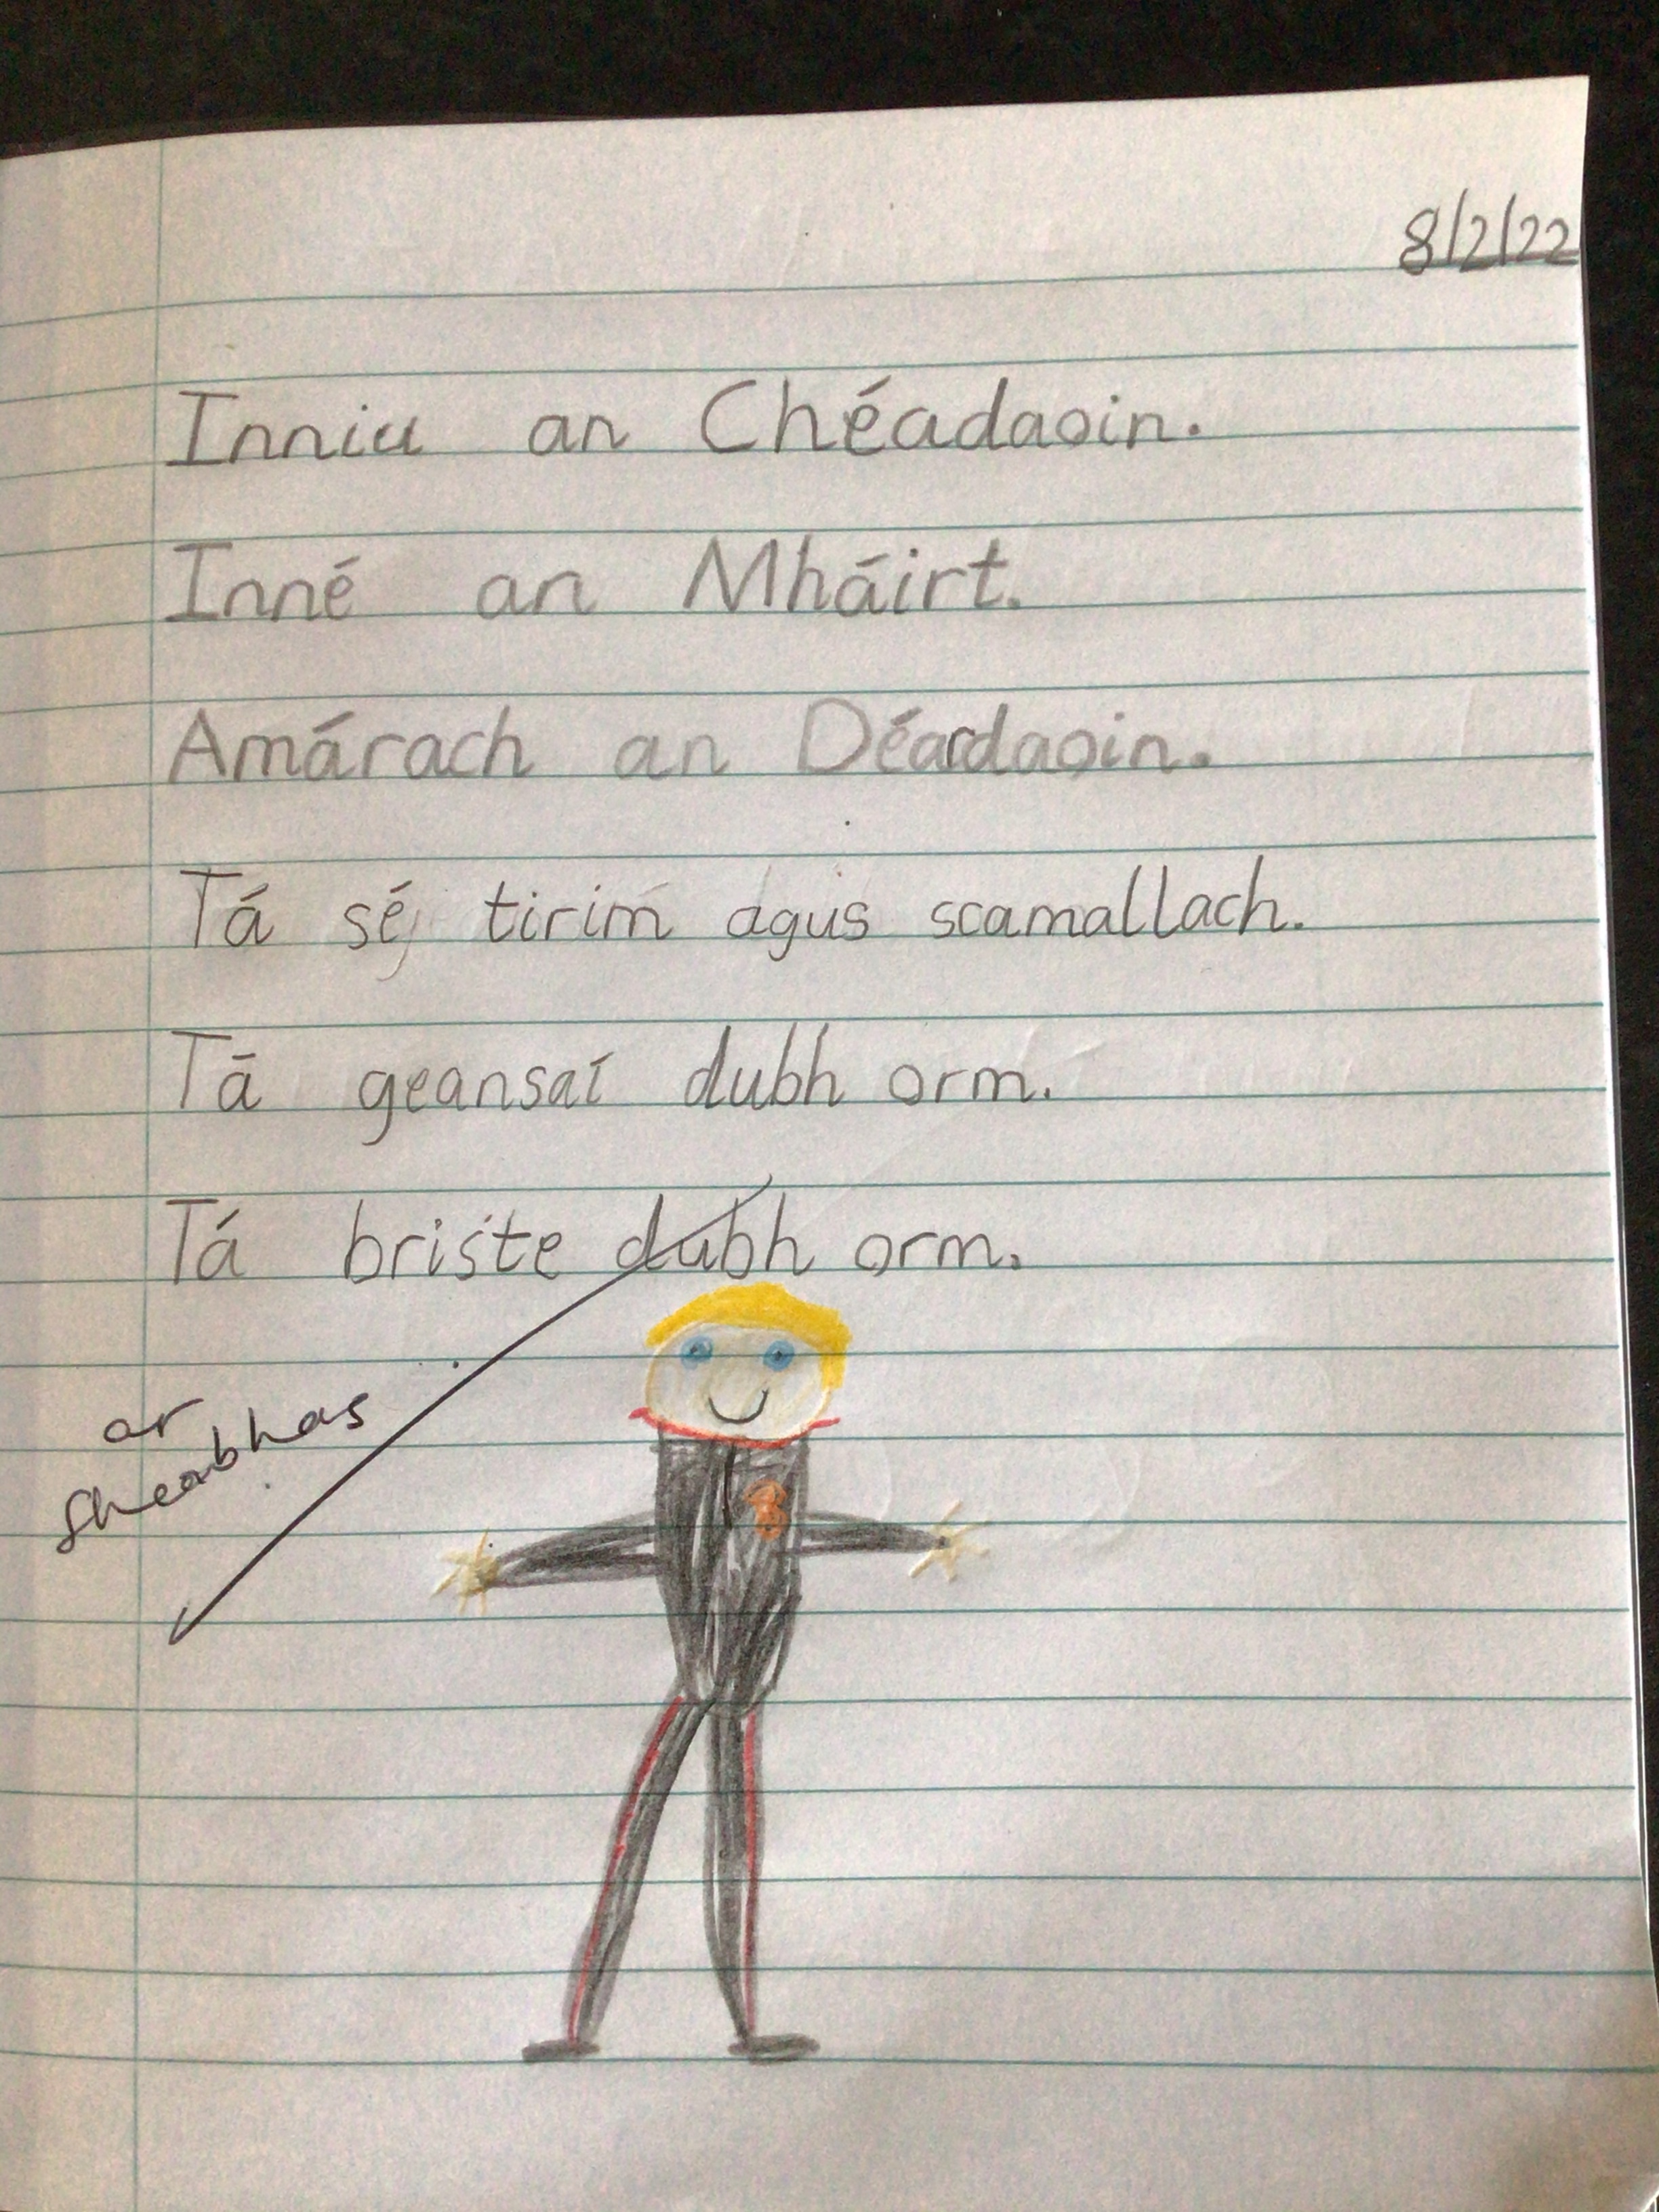 8/2/22
Inniu an Chéadaoin.
Inné an Mháirt.
Amárach an Déardaoin.
Tá sé tirim agus scamallach.
Tá geansaí dubh orm.
Tá briste dubh orm.
ar
fheabhas